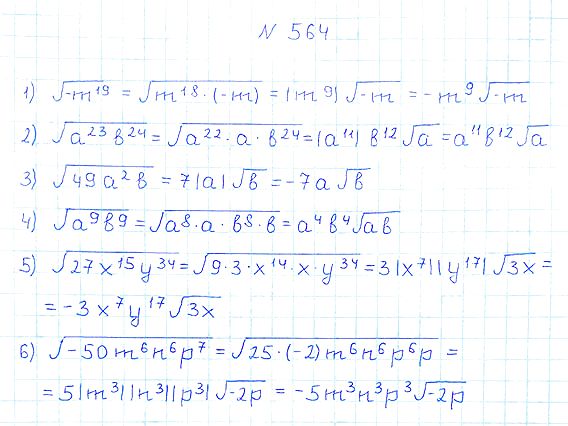 N 564
1) √(-m¹⁹) = √(m¹⁸·(-m)) = |m⁹| √(-m) = -m⁹ √(-m)
2) √(a²³b²⁴) = √(a²²·a·b²⁴) = |a¹¹| b¹² √a = a¹¹b¹² √a
3) √(49a²b) = 7|a| √b = -7a √b
4) √(a⁹b⁹) = √(a⁸·a·b⁸·b) = a⁴b⁴ √(ab)
5) √(27x¹⁵y³⁴) = √(9·3·x¹⁴·x·y³⁴) = 3|x⁷||y¹⁷| √(3x) =
= -3x⁷y¹⁷ √(3x)
6) √(-50m⁶n⁶p⁷) = √(25·(-2)m⁶n⁶p⁶p) =
= 5|m³||n³||p³| √(-2p) = -5m³n³p³ √(-2p)